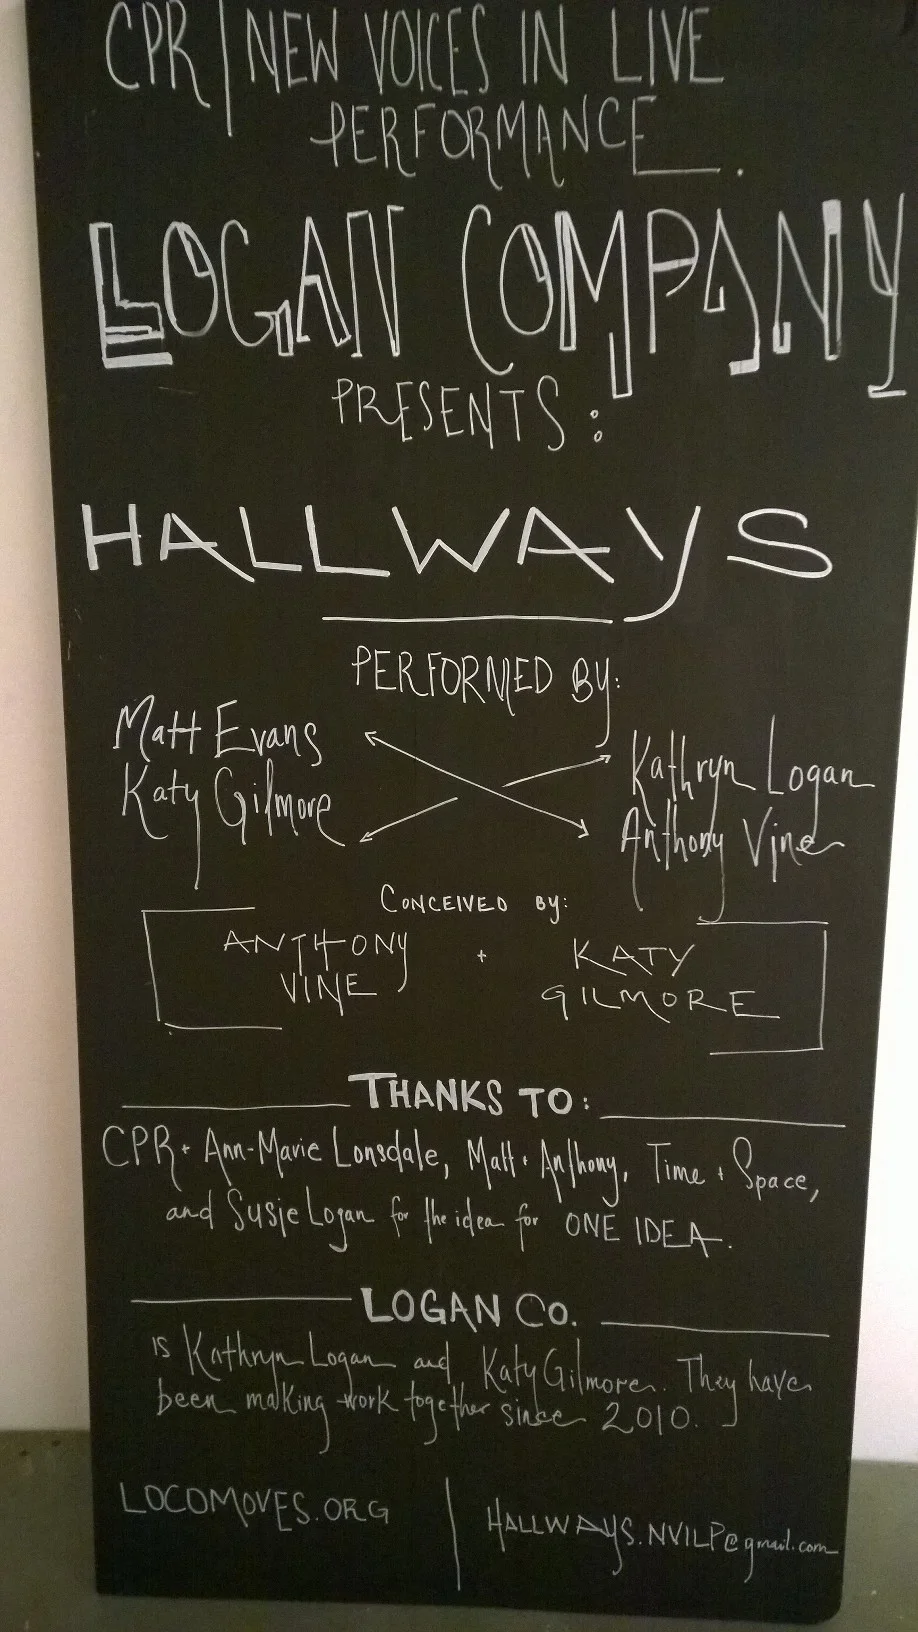 CPR | NEW VOICES IN LIVE
PERFORMANCE.
LOGAN COMPANY
PRESENTS:
HALLWAYS
PERFORMED BY:
Matt Evans
Katy Gilmore
Kathryn Logan
Anthony Vine
CONCEIVED BY:
ANTHONY
VINE
+
KATY
GILMORE
THANKS TO:
CPR + Ann-Marie Lonsdale, Matt + Anthony, Time + Space,
and Susie Logan for the idea for ONE IDEA.
LOGAN CO.
is Kathryn Logan and Katy Gilmore. They have
been making work together since 2010.
LOCOMOVES.ORG
HALLWAYS.NVILP@gmail.com